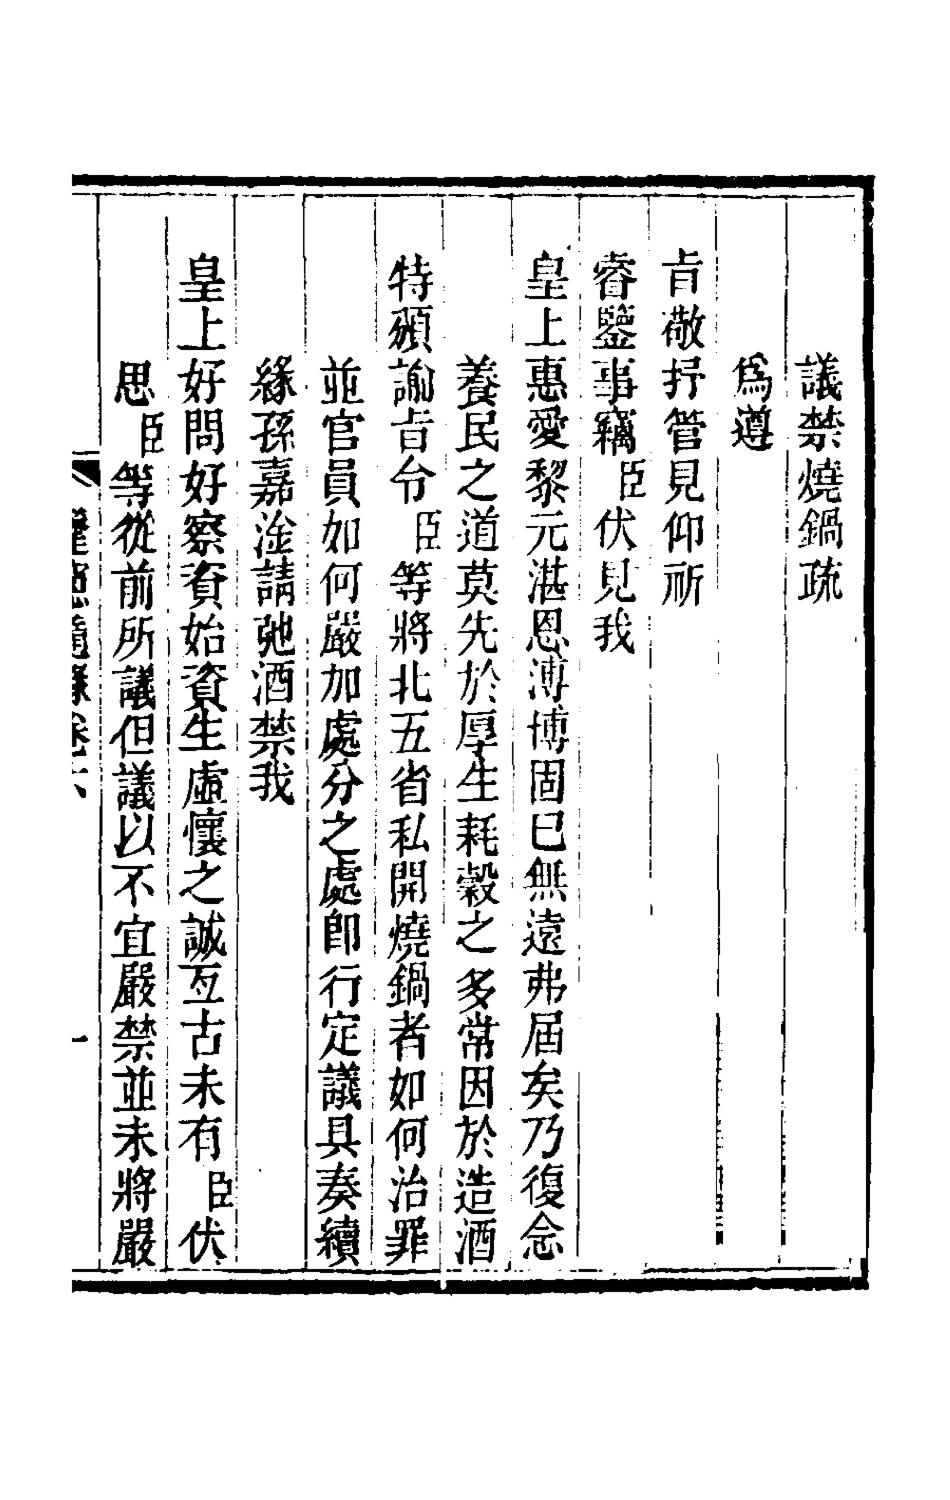 議禁燒鍋疏
為遵
旨敬抒管見仰祈
睿鑒事竊臣伏見我
皇上惠愛黎元湛恩溥博固已無遠弗屆矣乃復念
養民之道莫先於厚生耗穀之多常因於造酒
特頒諭旨令臣等將北五省私開燒鍋者如何治罪
並官員如何嚴加處分之處即行定議具奏續
緣孫嘉淦請弛酒禁我
皇上好問好察資始資生虛懷之誠亙古未有臣伏
思臣等從前所議但議以不宜嚴禁並未將嚴
隨錄卷六
一